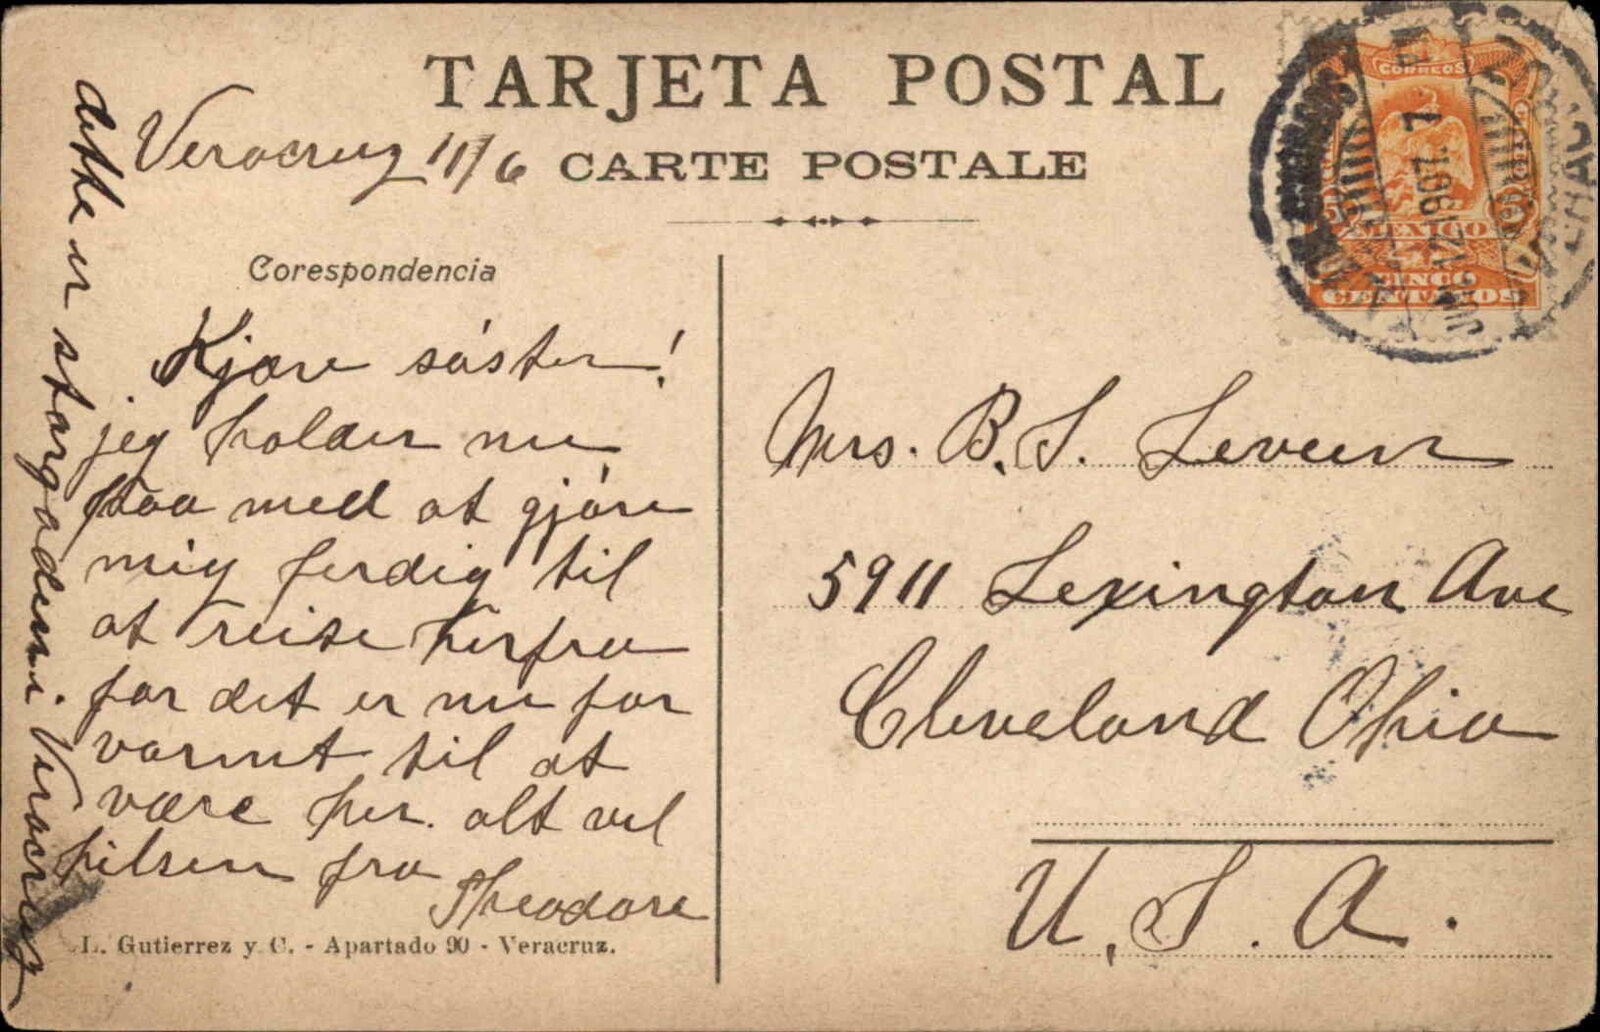 TARJETA POSTAL
Veracruz 11/6
CARTE POSTALE
Corespondencia
Kjære søster!
jeg holder nu
paa med at gjøre
mig ferdig til
at reise herfra
for det er nu for
varmt til at
være her. alt vel
hilsen fra
Theodore
dette er storgaden i Veracruz
L. Gutierrez y C. - Apartado 90 - Veracruz.
CORREOS
MEXICO
CINCO
CENTAVOS
JUN 12 1907
Mrs. B. S.
5911 Lexington Ave
Cleveland Ohio
U.S.A.